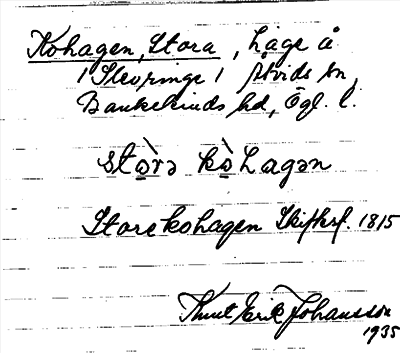 Kohagen, Stora, Läge å
/ Slevringe / Åtvids sn,
Bankekinds hd, Ögl. l.
stò̱rə kò̱hagən
Storekohagen Skifksf. 1815
Knut Erik Johansson
1935